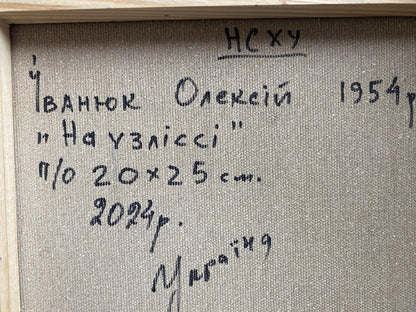 НСХУ
Іванюк Олексій 1954р
"На узліссі"
п/о 20×25 см.
2024р.
Україна